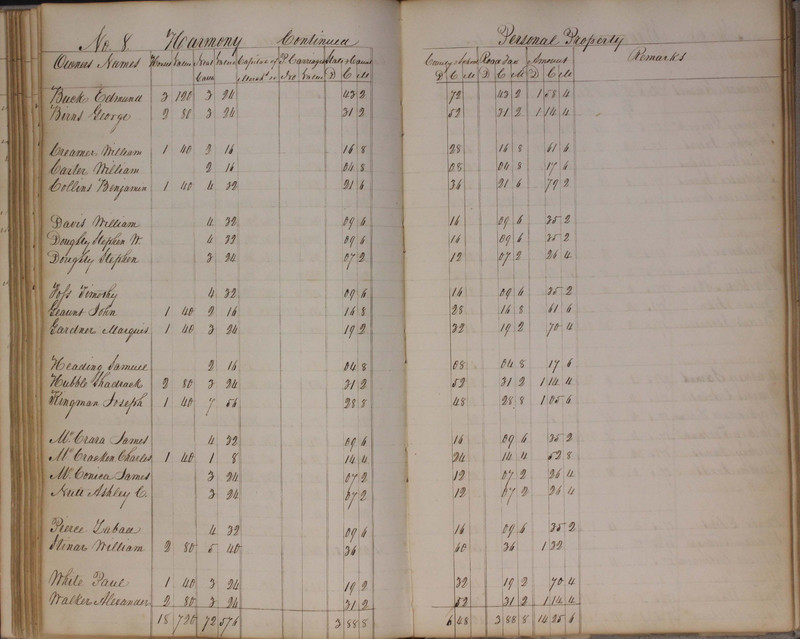 No. 8. Harmony Continued Personal Property
Owners Names Horses Value Neat Cattle Value Capital of Mercht. P. Carriages Value State & Canal D C M County & School D C M Road Tax D C M Amount D C M Remarks
Buck Edmund 3 120 3 24 43 2 72 43 2 1 58 4
Burns George 2 80 3 24 31 2 52 31 2 1 14 4
Creamer William 1 40 2 16 16 8 28 16 8 61 6
Carter William 2 16 04 8 08 04 8 17 6
Collins Benjamin 1 40 4 32 21 6 36 21 6 79 2
Davis William 4 32 09 6 16 09 6 35 2
Doughty Stephen W. 4 32 09 6 16 09 6 35 2
Doughty Stephen 3 24 07 2 12 07 2 26 4
Foss Timothy 4 32 09 6 16 09 6 35 2
Gaunt John 1 40 2 16 16 8 28 16 8 61 6
Gardner Marques 1 40 3 24 19 2 32 19 2 70 4
Heading Samuel 2 16 04 8 08 04 8 17 6
Hubble Shadrack 2 80 3 24 31 2 52 31 2 1 14 4
Kingman Joseph 1 40 7 56 28 8 48 28 8 1 05 6
McCrara James 4 32 09 6 16 09 6 35 2
McCracken Charles 1 40 1 8 14 4 24 14 4 52 8
McConica James 3 24 07 2 12 07 2 26 4
Ashley C. 3 24 07 2 12 07 2 26 4
Pierce 4 32 09 6 16 09 6 35 2
Stinar William 2 80 5 40 36 60 36 1 32
White Paul 1 40 3 24 19 2 32 19 2 70 4
Walker Alexander 2 80 3 24 31 2 52 31 2 1 14 4
18 720 72 576 3 88 8 6 48 3 88 8 14 25 6